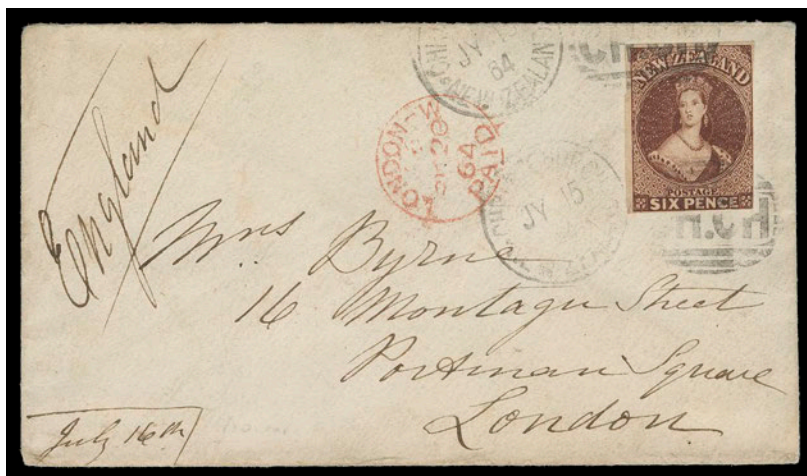 JY 15
64
NEW ZEALAND
NEW ZEALAND
POSTAGE
SIX PENCE
LONDON-W
20
64
PAID
JY 15
H.CH
England
Mrs Byrne
16 Montagu Street
Portman Square
London
July 16th